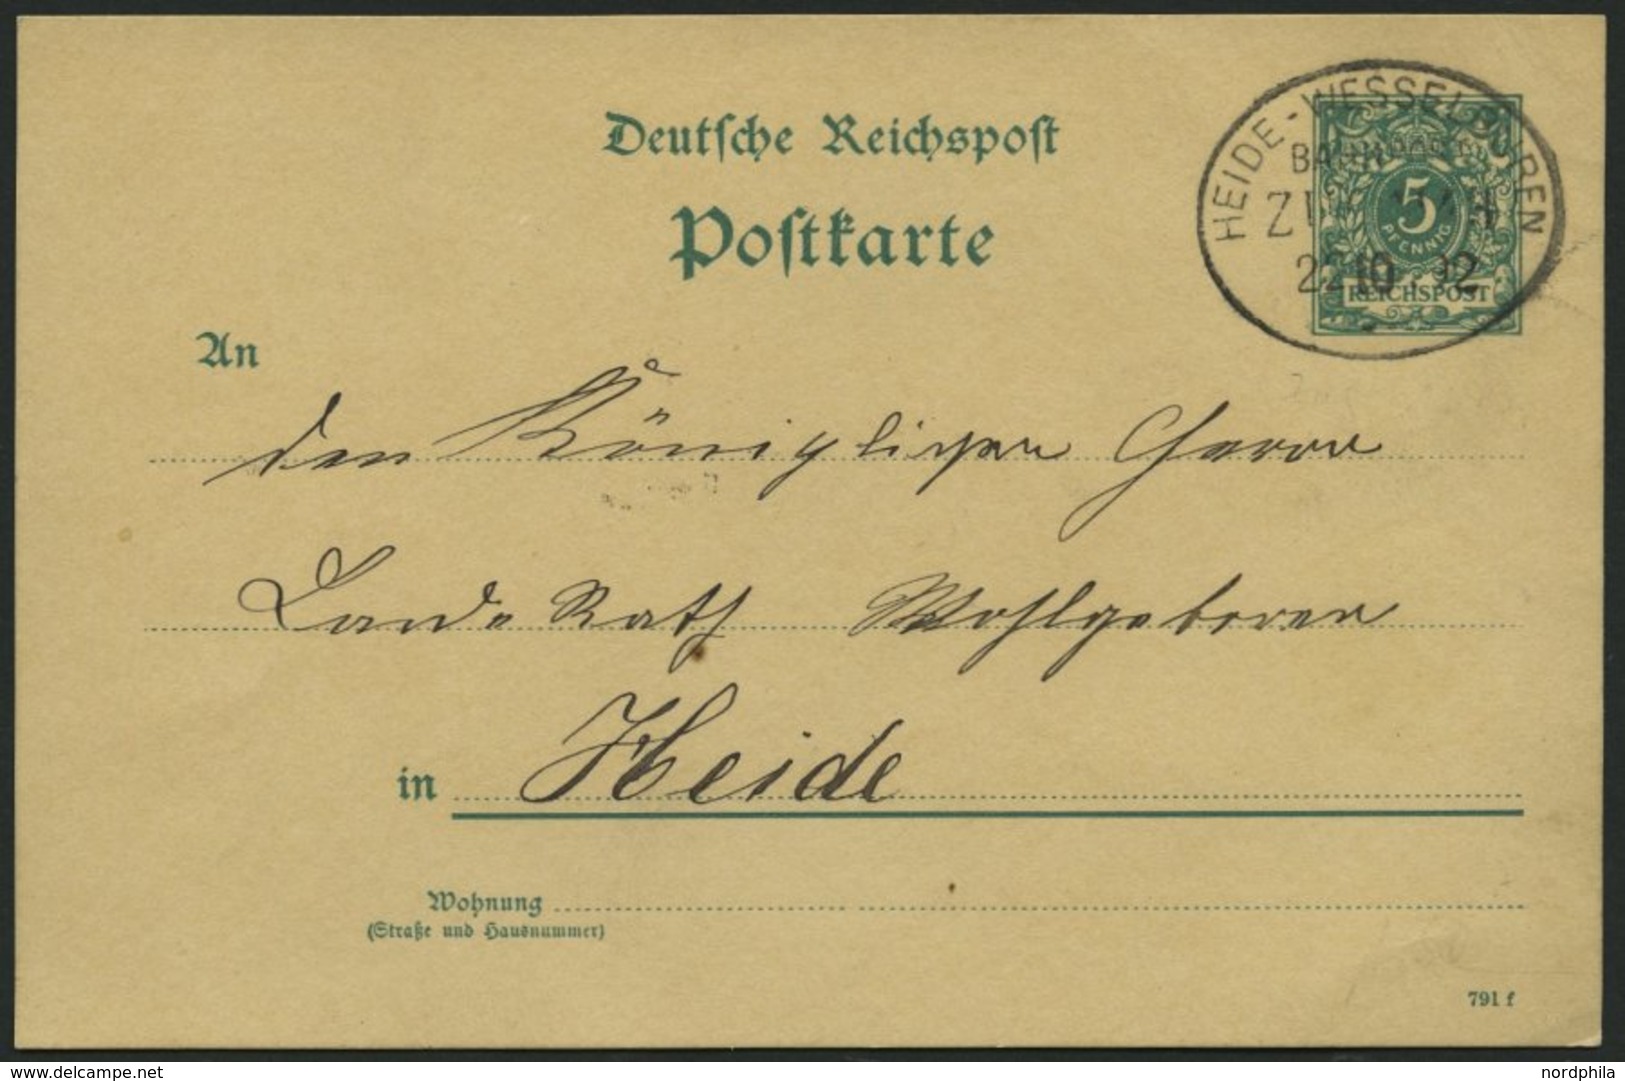 Deutsche Reichspost
Postkarte
HEIDE-WESSELBUREN
BAHNPOST
ZUG
22 10 92
5
PFENNIG
REICHSPOST
An
den Königlichen Herrn
Landes Rath Wohlgeboren
in Heide
Wohnung
(Straße und Hausnummer)
791 f
www.delcampe.net
nordphila